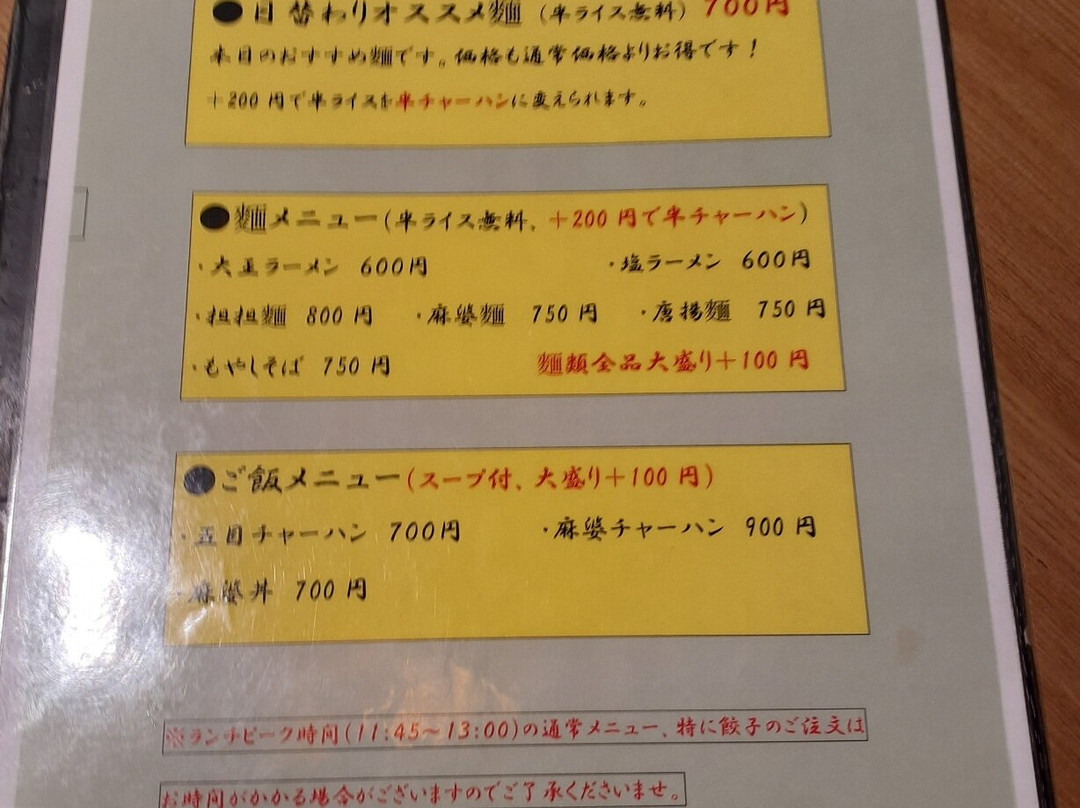 ●日替わりオススメ麺 (半ライス無料) 700円
本日のおすすめ麺です。価格も通常価格よりお得です!
+200 円で半ライスを半チャーハンに変えられます。
●麺メニュー(半ライス無料、+200 円で半チャーハン)
・大正ラーメン 600円 ・塩ラーメン 600円
・担担麺 800 円 ・麻婆麺 750 円 ・唐揚麺 750 円
・もやしそば 750 円 麺類全品大盛り+100 円
●ご飯メニュー(スープ付、大盛り+100 円)
・五目チャーハン 700円 ・麻婆チャーハン 900 円
・麻婆丼 700 円
※ランチピーク時間(11:45~13:00)の通常メニュー、特に餃子のご注文は
お時間がかかる場合がございますのでご了承くださいませ。